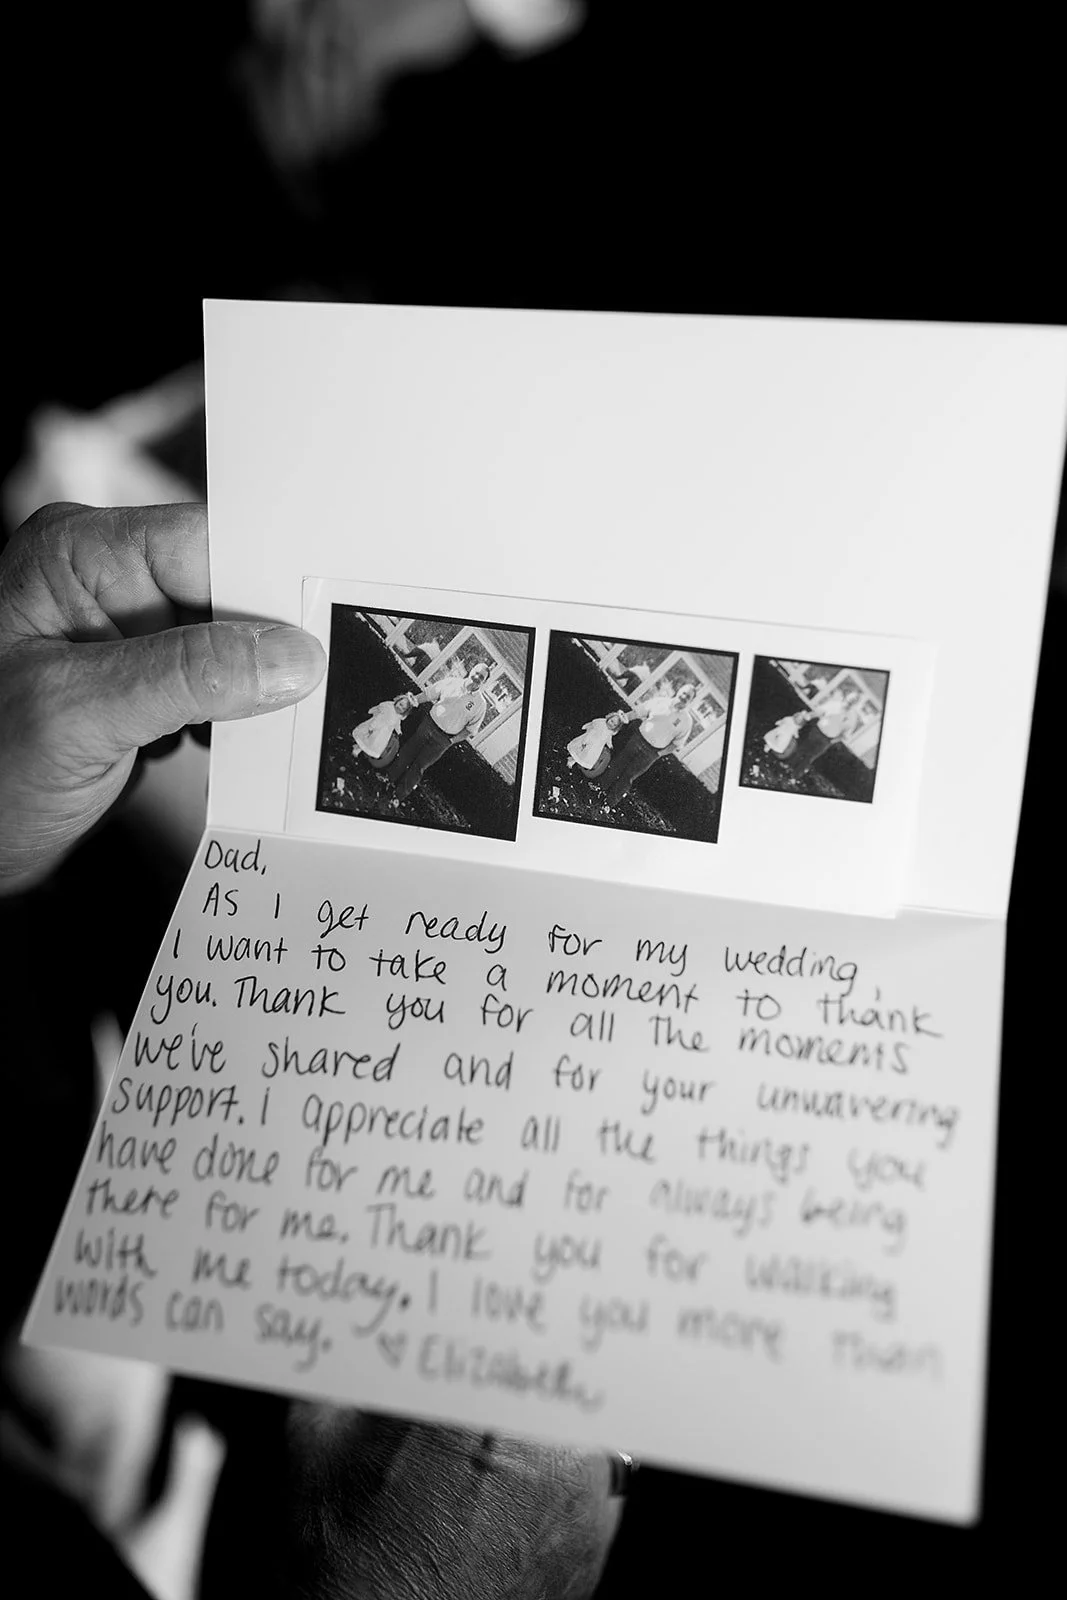 Dad,
As I get ready for my wedding,
I want to take a moment to thank
you. Thank you for all the moments
we've shared and for your unwavering
support. I appreciate all the things you
have done for me and for always being
there for me. Thank you for walking
with me today. I love you more than
words can say. ♡ Elizabeth